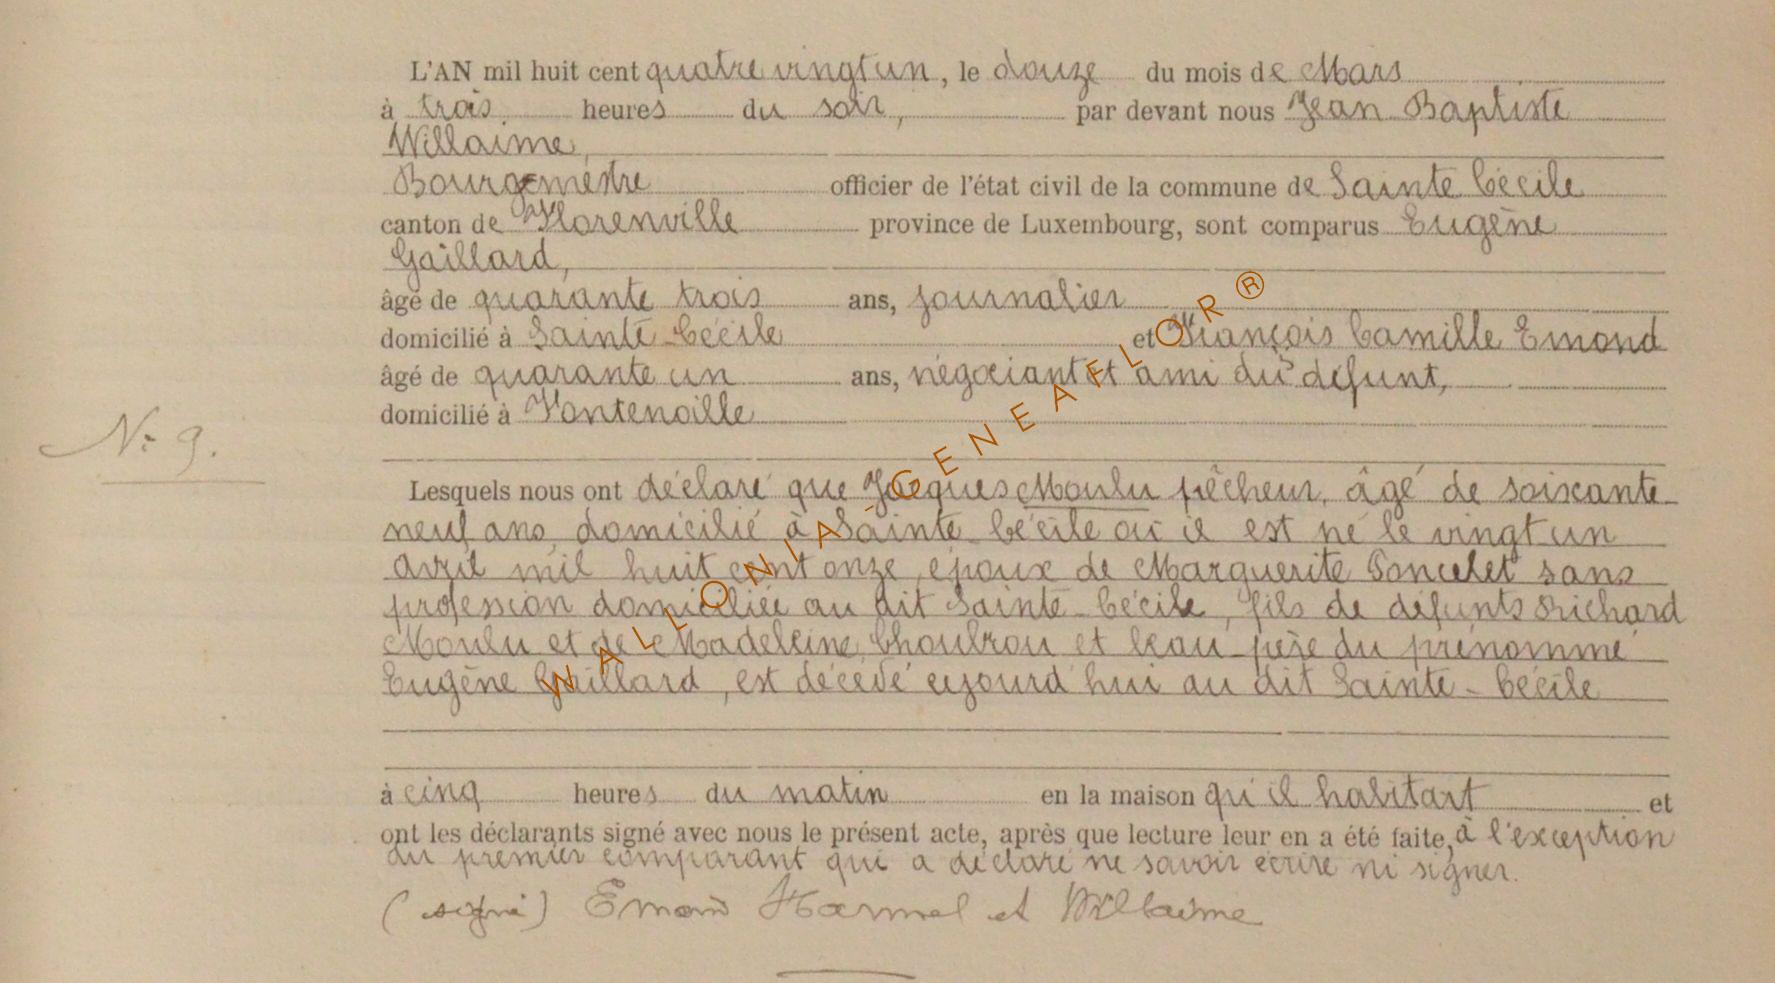 L'AN mil huit cent quatre vingt un, le douze du mois de Mars
à trois heures du soir, par devant nous Jean Baptiste
Willaime,
Bourgmestre officier de l'état civil de la commune de Sainte Cécile
canton de Florenville province de Luxembourg, sont comparus Eugène
Gaillard,
âgé de quarante trois ans, journalier
domicilié à Sainte-Cécile et François Camille Emond
âgé de quarante un ans, négociant et ami du défunt,
domicilié à Fontenoille
N: 9.
Lesquels nous ont déclaré que Jacques Moulu pêcheur, âgé de soixante
neuf ans domicilié à Sainte Cécile où il est né le vingt un
avril mil huit cent onze, époux de Marguerite Poncelet sans
profession domiciliée au dit Sainte-Cécile, fils de défunts Richard
Moulu et de Madeleine et beau-père du prénommé
Eugène Gaillard, est décédé aujourd'hui au dit Sainte-Cécile
à cinq heures du matin en la maison qu'il habitait et
ont les déclarants signé avec nous le présent acte, après que lecture leur en a été faite, à l'exception
du premier comparant qui a déclaré ne savoir écrire ni signer.
(signé) Emond et Willaime
WALLONIA - GENEAFLOR®